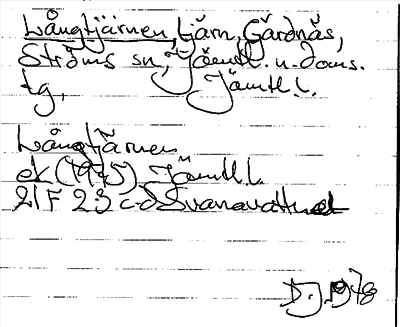 Långtjärnen, tjärn, Gärdnäs,
Ströms sn, Jämtl. n. doms.
tg, Jämtl. l.
Långtjärnen
ek (1975) Jämtl. l.
21F 23 c-d Svanavattnet
D.J. 1978